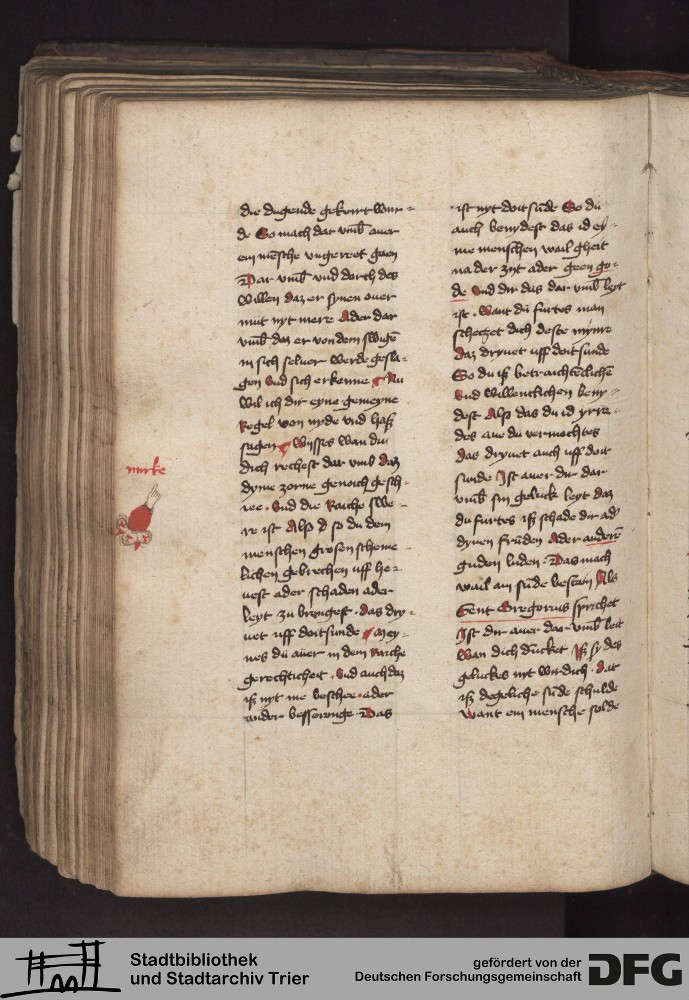 die dugende gekeirt wur⸗
de So mach dar vmb auer
ein mēsche vngereet gaen
Dar vmb vnd dorch des
willen daz er synen ouer
mut nyt mere Ader dar
vmb daz er von dem swigē
in sich seluer werde gesla⸗
gen Vnd sich erkenne Nu
wil ich dir eyne gemeyne
Regel von nyde vnd haß
sagen Wysses wan du
dich rechest dar vmb daz
dyme zorne genoich gesch⸗
iee. Vnd die Raiche swe⸗
re ist Alß d so du dem
menschen grosen scheme⸗
lichen gebrechen uff he⸗
uest ader schaden ader
leyt zu brengest. das dry⸗
uet uff doitsunde Mey⸗
nes du auer in dem Raiche
gerechticheit. Vnd auch daz
iß nyt me beschee. ader
ander besserunge Das
merke
ist nyt doitsūde So du
auch benydest das id ey⸗
me menschen wail gheit
na der zyt ader geen go⸗
de Vnd dir das dar vmb leyt
ist. Want du furtes man
schetzet dich deste mynre
daz dryuet uff doitsunde
So du iß betrachtēclichē
Vnd willentlichen beny⸗
dest Alß das du id yrre⸗
des aue du vermochtes
das dryuet auch uff doit
sunde Ist auer dir dar
vmb sin geluck leyt daz
du furtes iß schade dir ad'
dynen frūden Ader anderē
guden luden. Das mach
wail an sūde bestain Als
Sent Gregorius sprichet
Ist dir auer dar vmb leit
Wan dich dūcket Iß sy des
geluckes nyt wirdich. dat
iß degeliche sūde schulde
Want ein mensche solde
Stadtbibliothek
und Stadtarchiv Trier
gefördert von der
Deutschen Forschungsgemeinschaft
DFG